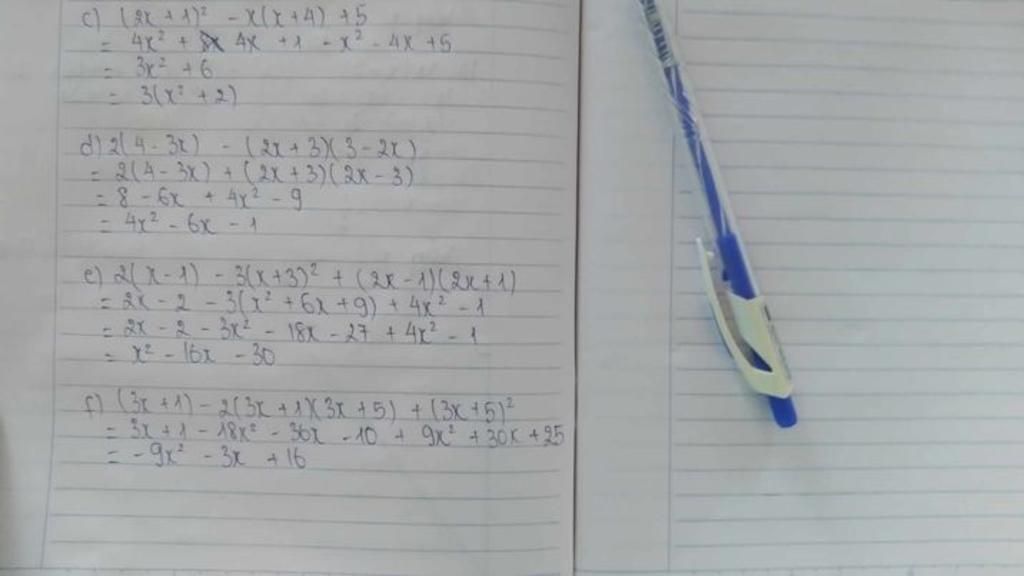 c) (2x + 1)² - x(x + 4) + 5
= 4x² + 4x + 1 - x² - 4x + 5
= 3x² + 6
= 3(x² + 2)
d) 2(4 - 3x) - (2x + 3)(3 - 2x)
= 2(4 - 3x) + (2x + 3)(2x - 3)
= 8 - 6x + 4x² - 9
= 4x² - 6x - 1
e) 2(x - 1) - 3(x + 3)² + (2x - 1)(2x + 1)
= 2x - 2 - 3(x² + 6x + 9) + 4x² - 1
= 2x - 2 - 3x² - 18x - 27 + 4x² - 1
= x² - 16x - 30
f) (3x + 1) - 2(3x + 1)(3x + 5) + (3x + 5)²
= 3x + 1 - 18x² - 36x - 10 + 9x² + 30x + 25
= - 9x² - 3x + 16